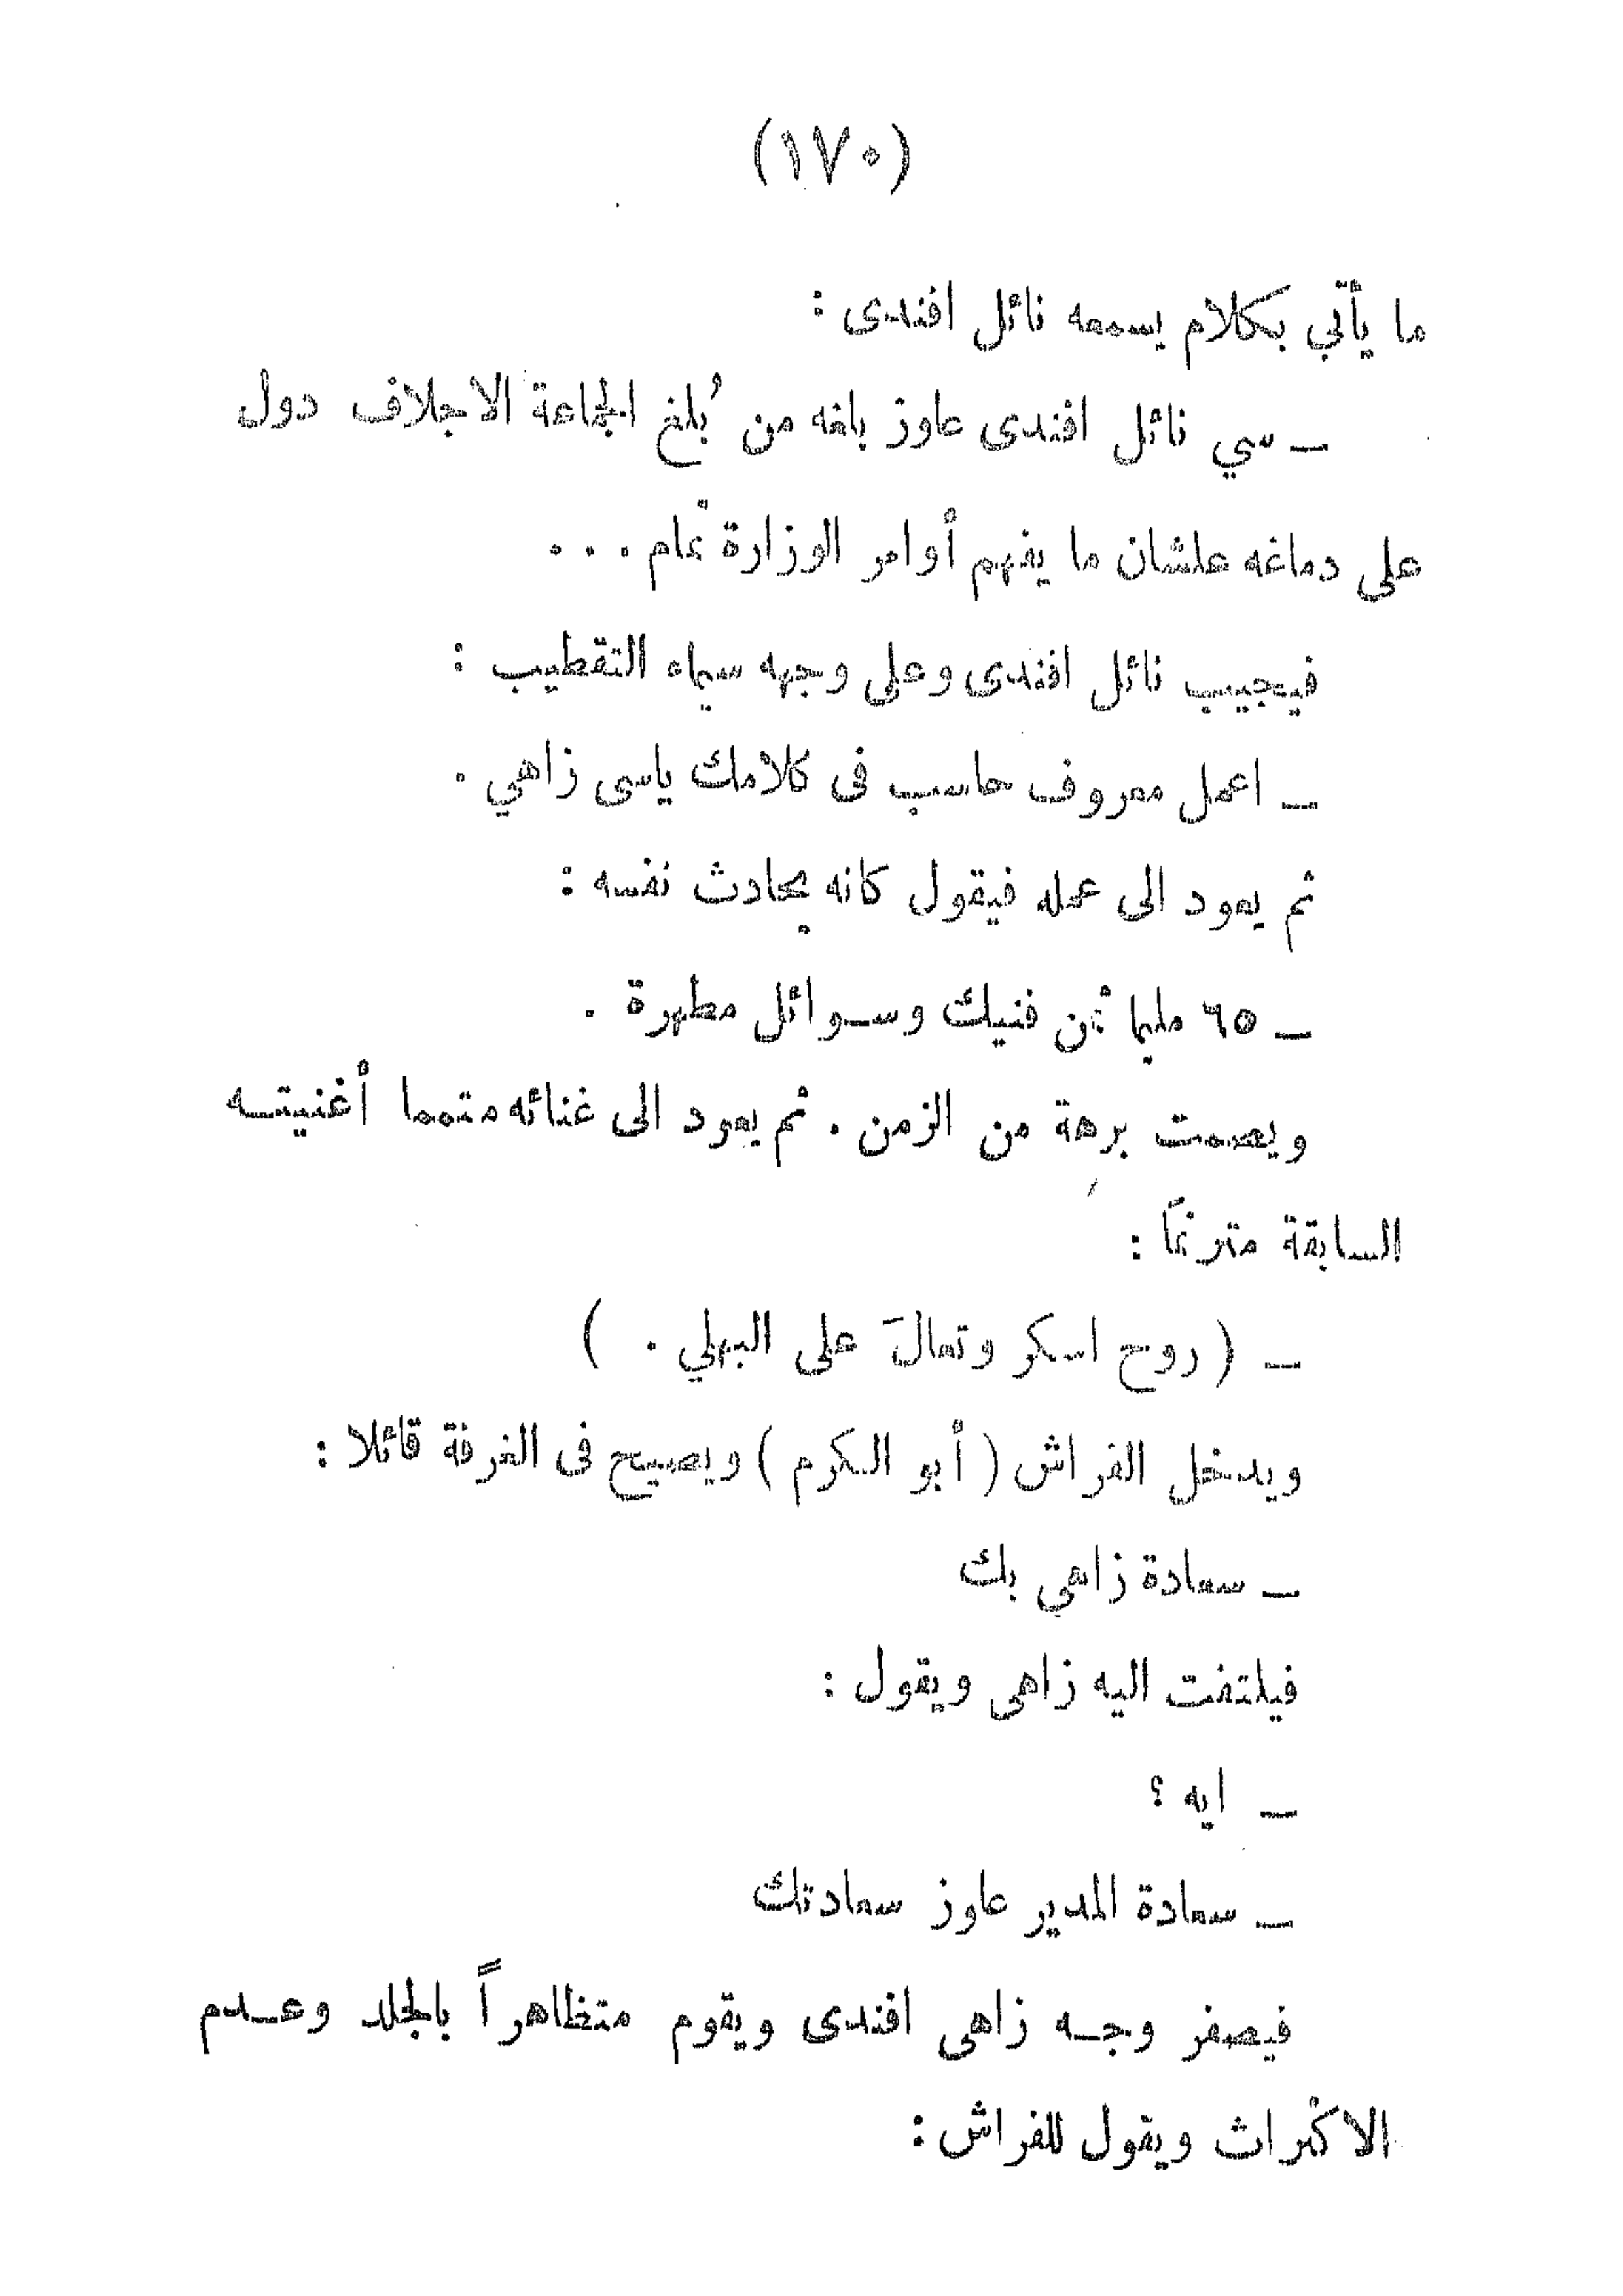 (١٧٠)
ما يأتي بكلام يسمعه نائل افندى :
ـ سي نائل افندى عاوز بلغه من بُلغ الجماعة الاجلاف دول
على دماغه علشان ما يفهم أوامر الوزارة تمام . . .
فيجيب نائل افندى وعلى وجهه سياء التقطيب :
ـ اعمل معروف حاسب فى كلامك ياسى زاهي .
ثم يعود الى عمله فيقول كانه يحادث نفسه :
ـ ٦٥ مليما ثمن فنيك وسـوائل مطهرة .
ويصمت برهة من الزمن . ثم يعود الى غنائه متمما أغنيتـه
السابقة مترنماً :
ـ ( روح اسكر وتعالَ على البهلي . )
ويدخل الفراش ( أبو الكرم ) ويصيح فى الغرفة قائلا :
ـ سعادة زاهي بك
فيلتفت اليه زاهى ويقول :
ـ ايه ؟
ـ سعادة المدير عاوز سعادتك
فيصفر وجـه زاهى افندى ويقوم متظاهراً بالجلد وعـدم
الاكتراث ويقول للفراش :